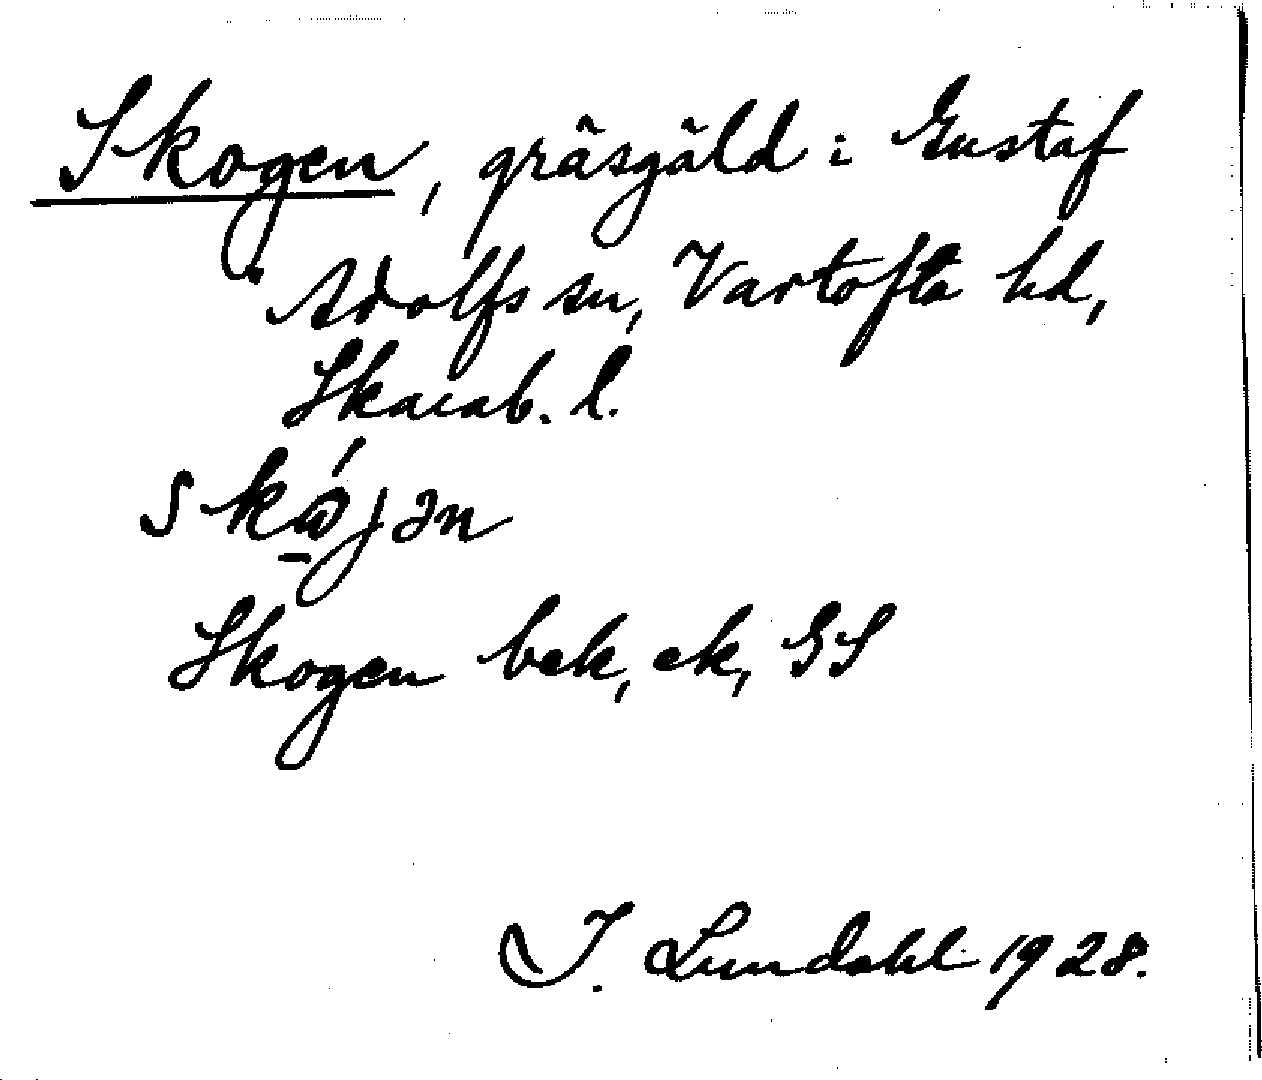 Skogen, gräsgäld i Gustaf
Adolfs sn, Vartofta hd,
Skarab. l.
skώ̱jən
Skogen bek, ek, GS
I. Lundahl 1928.